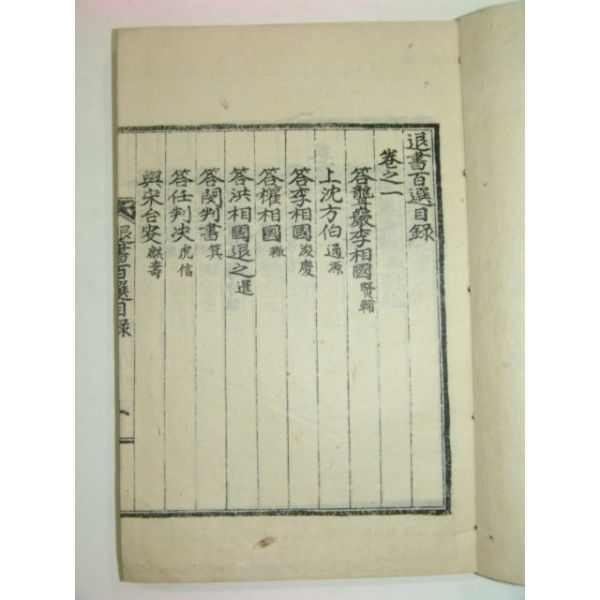 退書百選目錄
卷之一
答聾巖李相國賢輔
上沈方伯通源
答李相國浚慶
答權相國轍
答洪相國退之暹
答閔判書箕
答任判决虎臣
與宋台叟麒壽
退書百選目錄